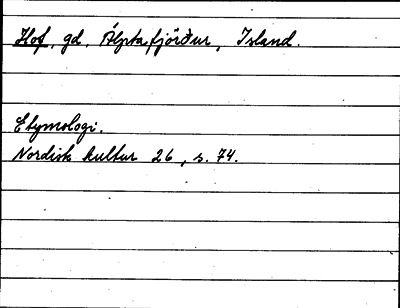 Hof, gd. Álptafjörður, Island.
Etymologi.
Nordisk kultur 26, s. 74.